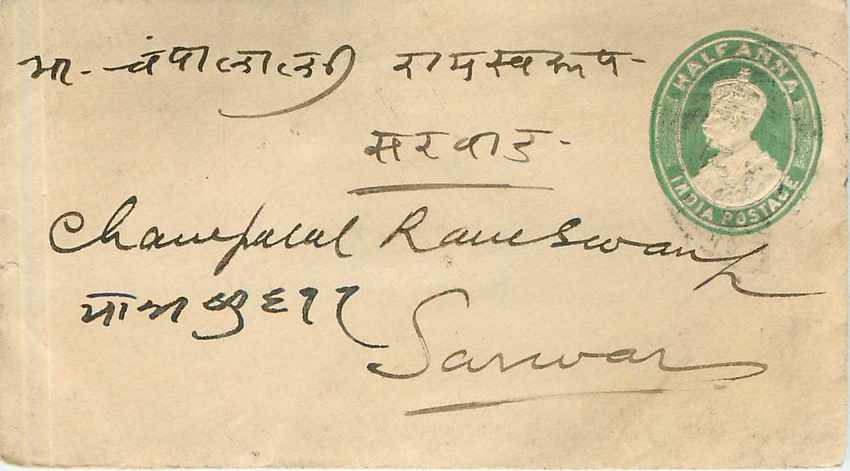 भा. चंपालालजी रामस्वरूप
सरवाड
HALF ANNA
INDIA POSTAGE
Champalal Ramswarup
Sarwar